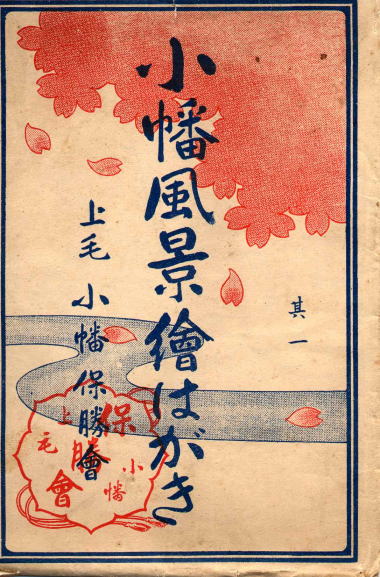 其一
小幡風景繪はがき
上毛 小幡保勝會
上毛
小幡
保勝會